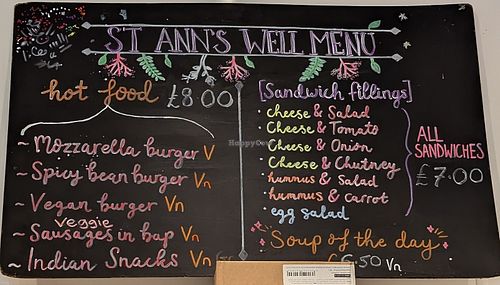 ST ANN'S WELL MENU
hot food £8.00
~ Mozzarella burger V
~ Spicy bean burger Vn
~ Vegan burger Vn
veggie
~ Sausages in bap Vn
~ Indian Snacks Vn
[Sandwich fillings]
· cheese & Salad
· Cheese & Tomato
· Cheese & Onion
· Cheese & Chutney
· hummus & Salad
· hummus & carrot
· egg salad
ALL
SANDWICHES
£7.00
Soup of the day
6.50 Vn
HappyCow